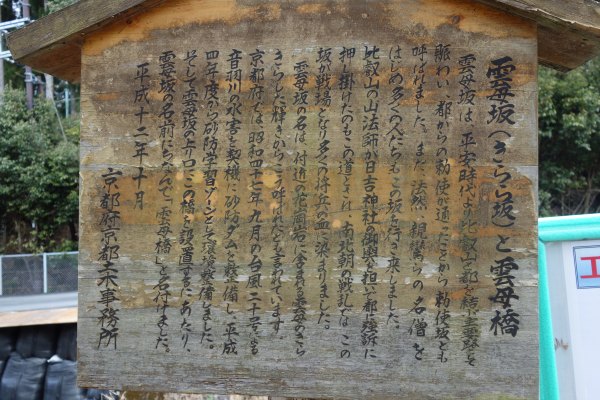 雲母坂(きらら坂)と雲母橋
雲母坂は、平安時代より比叡山と都を結ぶ主要路として
賑わい、都からの勅使が通ったことから勅使坂とも
呼ばれました。また、法然、親鸞らの名僧を
はじめ多くの人たちもこの坂を行き来しました。
比叡山の山法師が日吉神社の御輿を担い都へ強訴に
押し掛けたのもこの道とされ、南北朝の戦乱ではこの
坂が戦場となり多くの将兵の血で染まりました。
雲母坂の名は、付近の花崗岩に含まれる雲母のきら
きらした輝きからこう呼ばれたとも言われています。
京都府では、昭和四十七年九月の台風二十号による
音羽川の水害を契機に砂防ダムを整備し、平成
四年度から砂防学習ゾーンとして環境整備しました。
そして、雲母坂の上り口にこの橋を設置するにあたり、
雲母坂の名前にちなんで「雲母橋」と名付けました。
平成十二年十月
京都府京都土木事務所